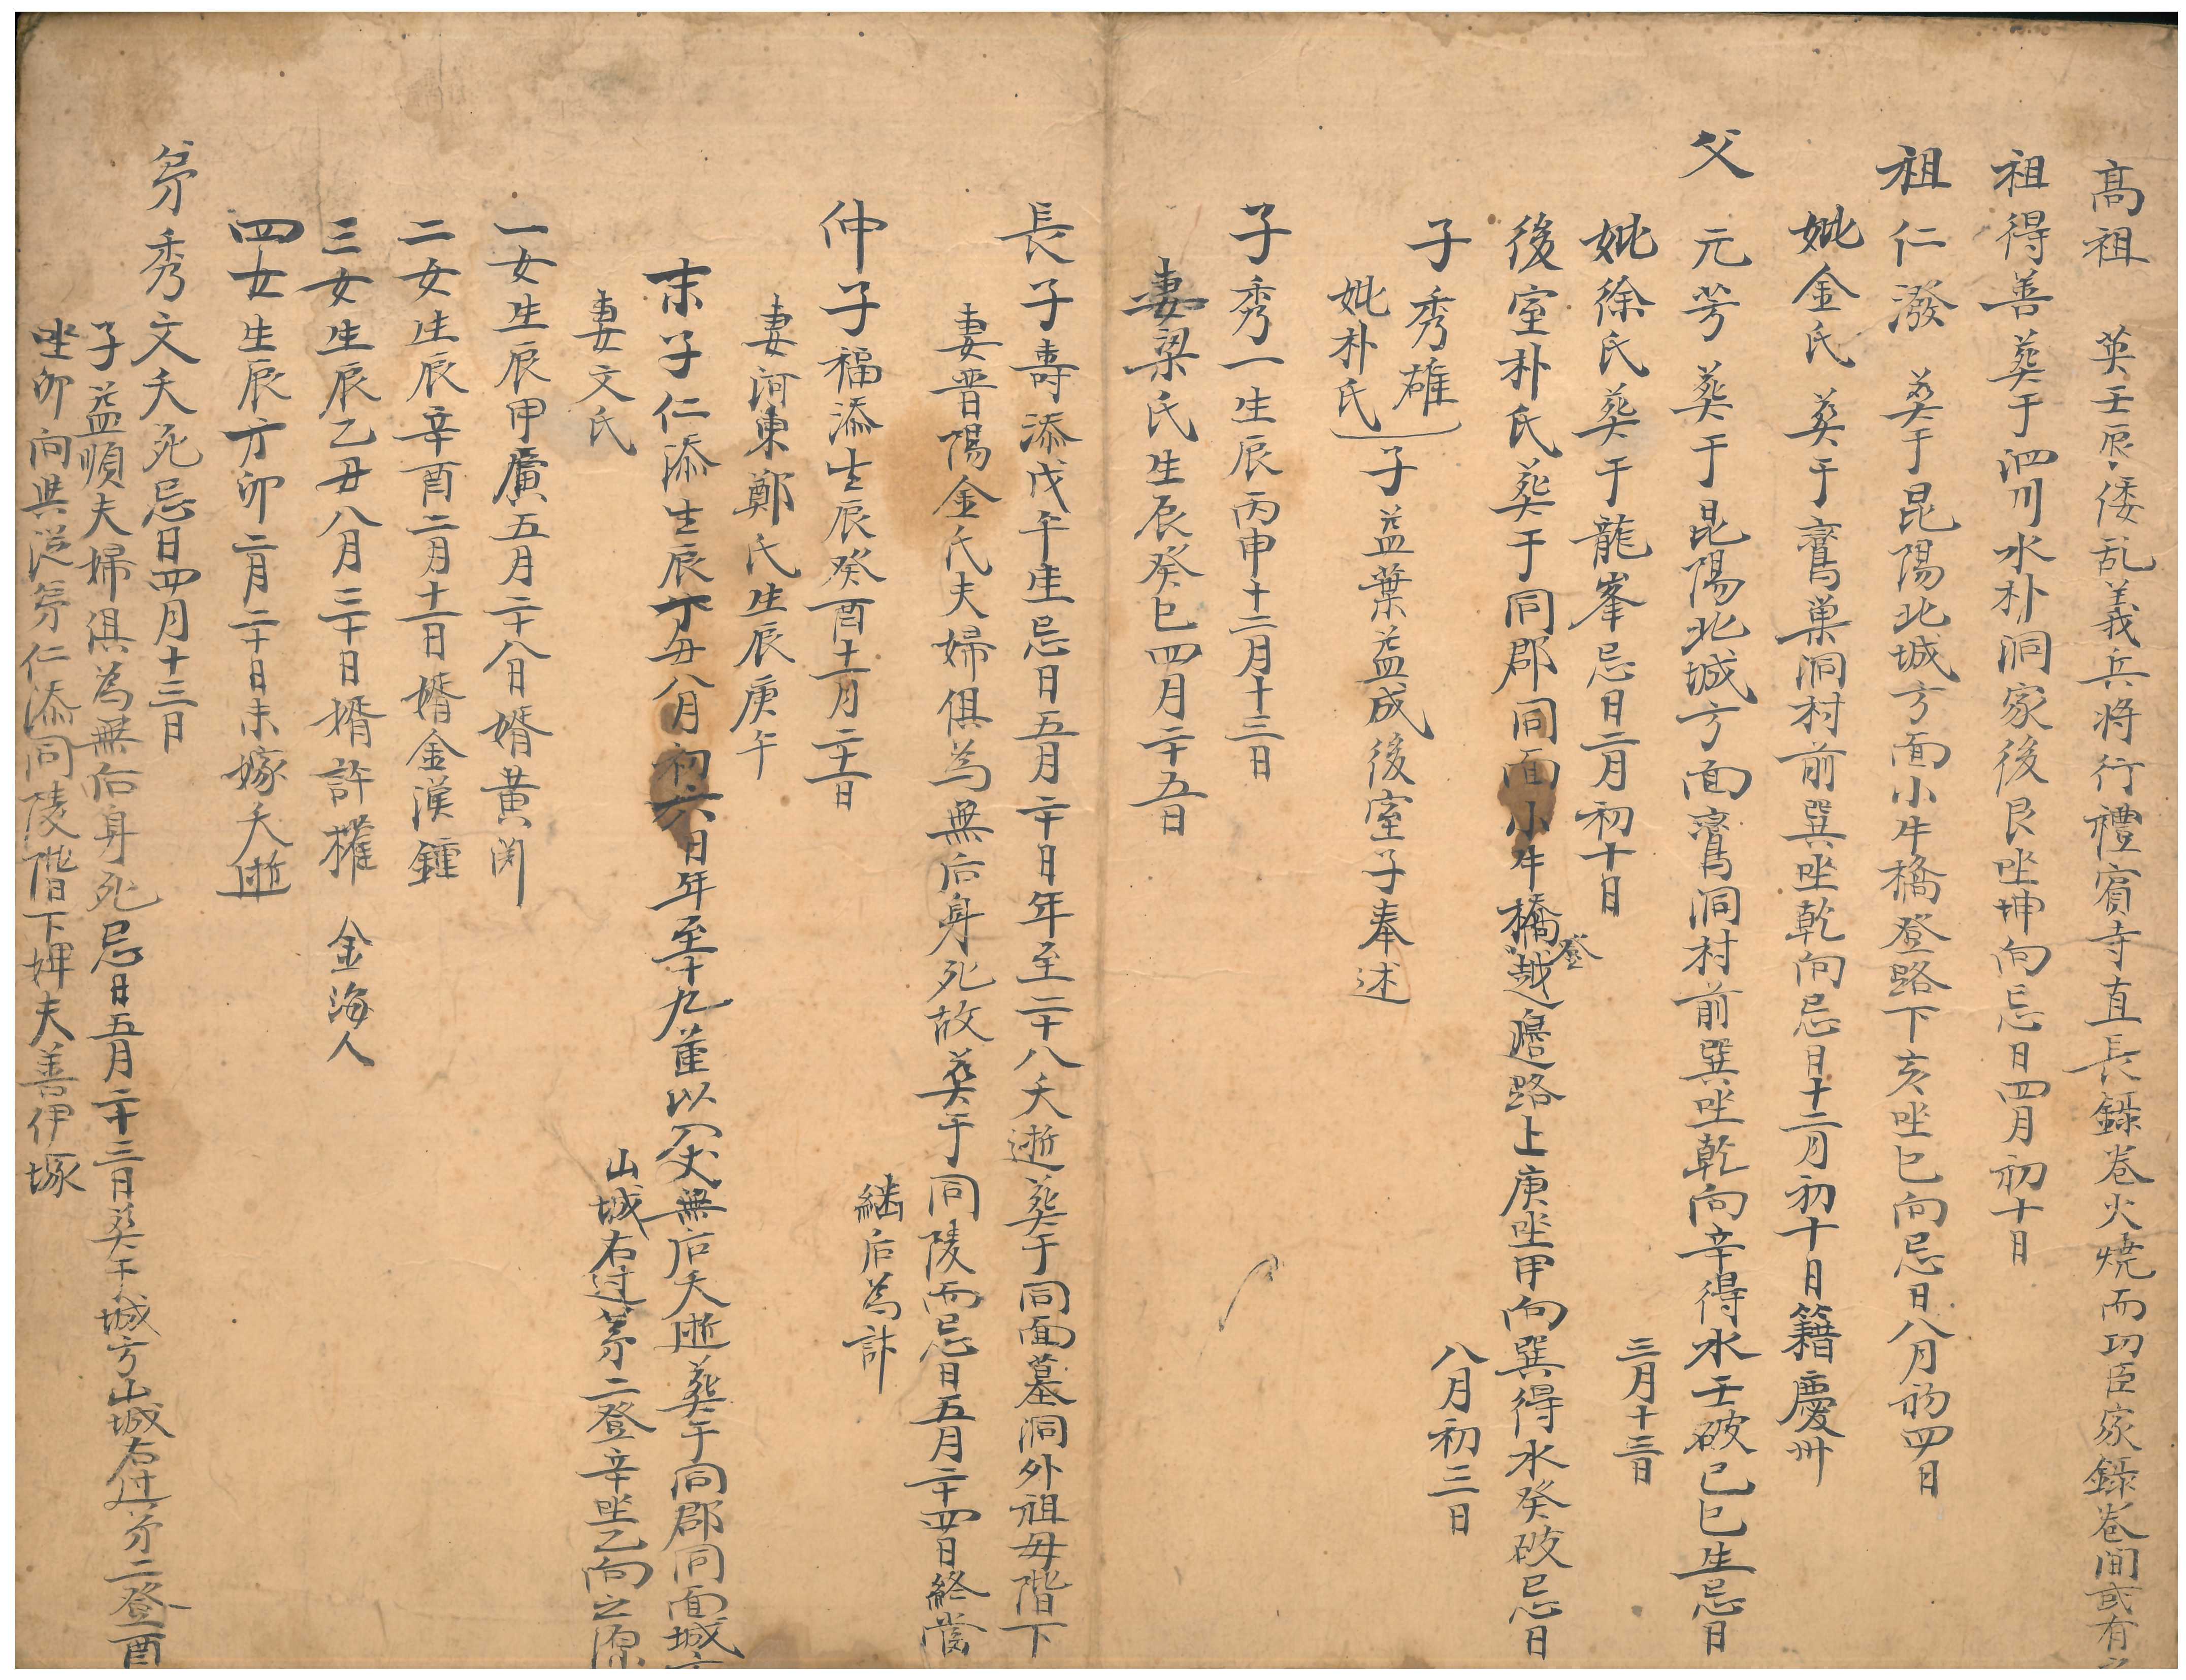 高祖 英壬辰倭乱義兵将行禮賓寺直長錄卷火燒而功臣家錄卷間或有
祖得善葬于泗川水朴洞家後艮坐坤向忌日四月初十日
祖仁潑 葬于昆陽北城方面小牛橋登路下亥坐巳向忌日八月初四日
妣金氏 葬于鷰巢洞村前巽坐乾向忌日十二月初十日籍慶州
父 元芳 葬于昆陽北城方面鷰洞村前巽坐乾向辛得水壬破己巳生忌日
三月十三日
妣徐氏葬于龍峯忌日二月初十日
後室朴氏葬于同郡同面小牛橋登越邊路上庚坐甲向巽得水癸破忌日
八月初三日
子秀雄
妣朴氏
子益葉益成後室子奉述
子秀一生辰丙申十二月十三日
妻梁氏生辰癸巳四月二十五日
長子壽添戊午生忌日五月二十日年至二十八夭逝葬于同面墓洞外祖母階下
妻晋陽金氏夫婦俱為無后身死故葬于同陵而忌日五月二十四日終嘗
継后為計
仲子福添生辰癸酉十一月二十一日
妻河東鄭氏生辰庚午
末子仁添生辰丁丑八月初六日年至十九董以無后夭逝葬于同郡同面城
山城右过第二登辛坐乙向之原
妻文氏
一女生辰甲五月二十八日婿黄
二女生辰辛酉二月十一日婿金漢鍾
三女生辰乙丑八月三十日婿許權 金海人
四女生辰方卯二月二十日未嫁夭逝
弟秀文夭死忌日四月十三日
子益順夫婦俱為無后身死忌日五月二十三日葬于城方山城右过第二登酉
坐卯向與從弟仁添同陵階下婢夫善伊塚